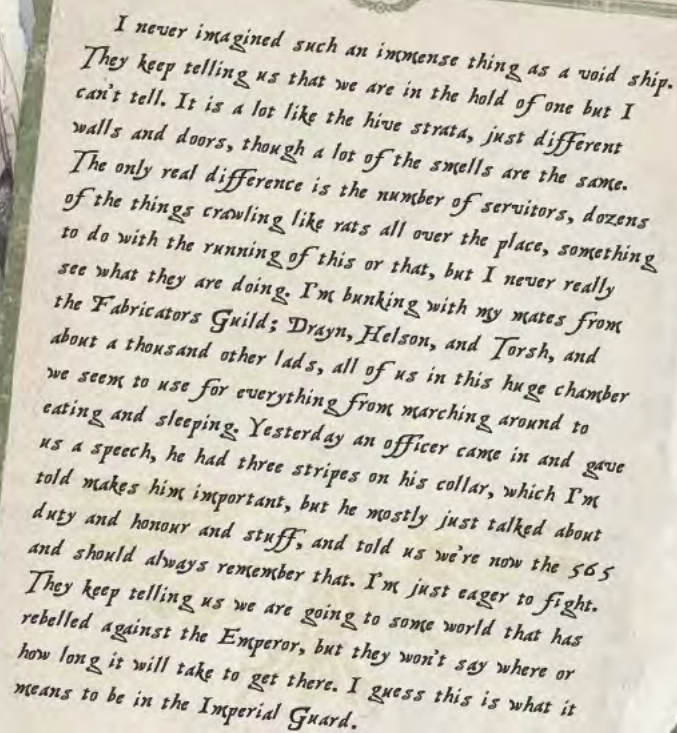 I never imagined such an immense thing as a void ship.
They keep telling us that we are in the hold of one but I
can't tell. It is a lot like the hive strata, just different
walls and doors, though a lot of the smells are the same.
The only real difference is the number of servitors, dozens
of the things crawling like rats all over the place, something
to do with the running of this or that, but I never really
see what they are doing. I'm bunking with my mates from
the Fabricators Guild; Drayn, Helson, and Torsh, and
about a thousand other lads, all of us in this huge chamber
we seem to use for everything from marching around to
eating and sleeping. Yesterday an officer came in and gave
us a speech, he had three stripes on his collar, which I'm
told makes him important, but he mostly just talked about
duty and honour and stuff, and told us we're now the 565
and should always remember that. I'm just eager to fight.
They keep telling us we are going to some world that has
rebelled against the Emperor, but they won't say where or
how long it will take to get there. I guess this is what it
means to be in the Imperial Guard.